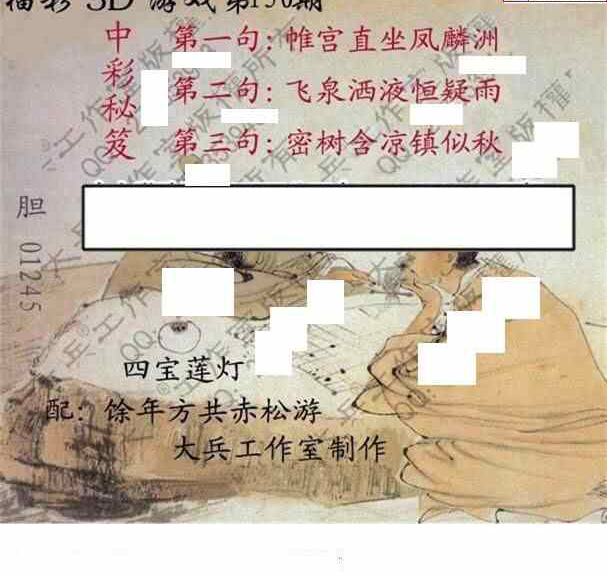 福彩 3D 游戏 第150期
中彩秘笈
第一句：帷宫直坐凤麟洲
第二句：飞泉洒液恒疑雨
第三句：密树含凉镇似秋
胆 01245
四宝莲灯
配：馀年方共赤松游
大兵工作室制作